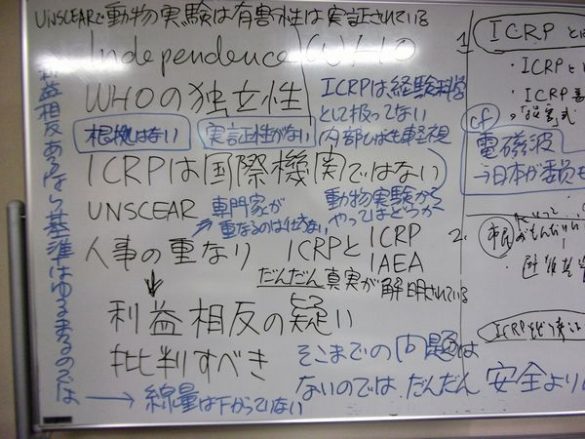 UNSCEARで動物の実験は有害性は実証されている
Independence WHO
WHOの独立性
ICRPは経験科学
として扱ってない
内部ひばくを軽視
根拠はない
実証性がない
ICRPは国際機関ではない
UNSCEAR
専門家が
重なるのは仕方ない
動物実験から
やってはどうか
人事の重なり
ICRPとICRP
IAEA
だんだん真実が解明されている
↓
利益相反の疑い
批判すべき
そこまでの問題は
ないのでは
だんだん安全より
→線量は下がっていない
利益相反あるなら基準はゆるまるのでは
1
ICRPと
・ICRPと
・ICRP
cf
電磁波
→日本が委員も
2.
市民
ICRP